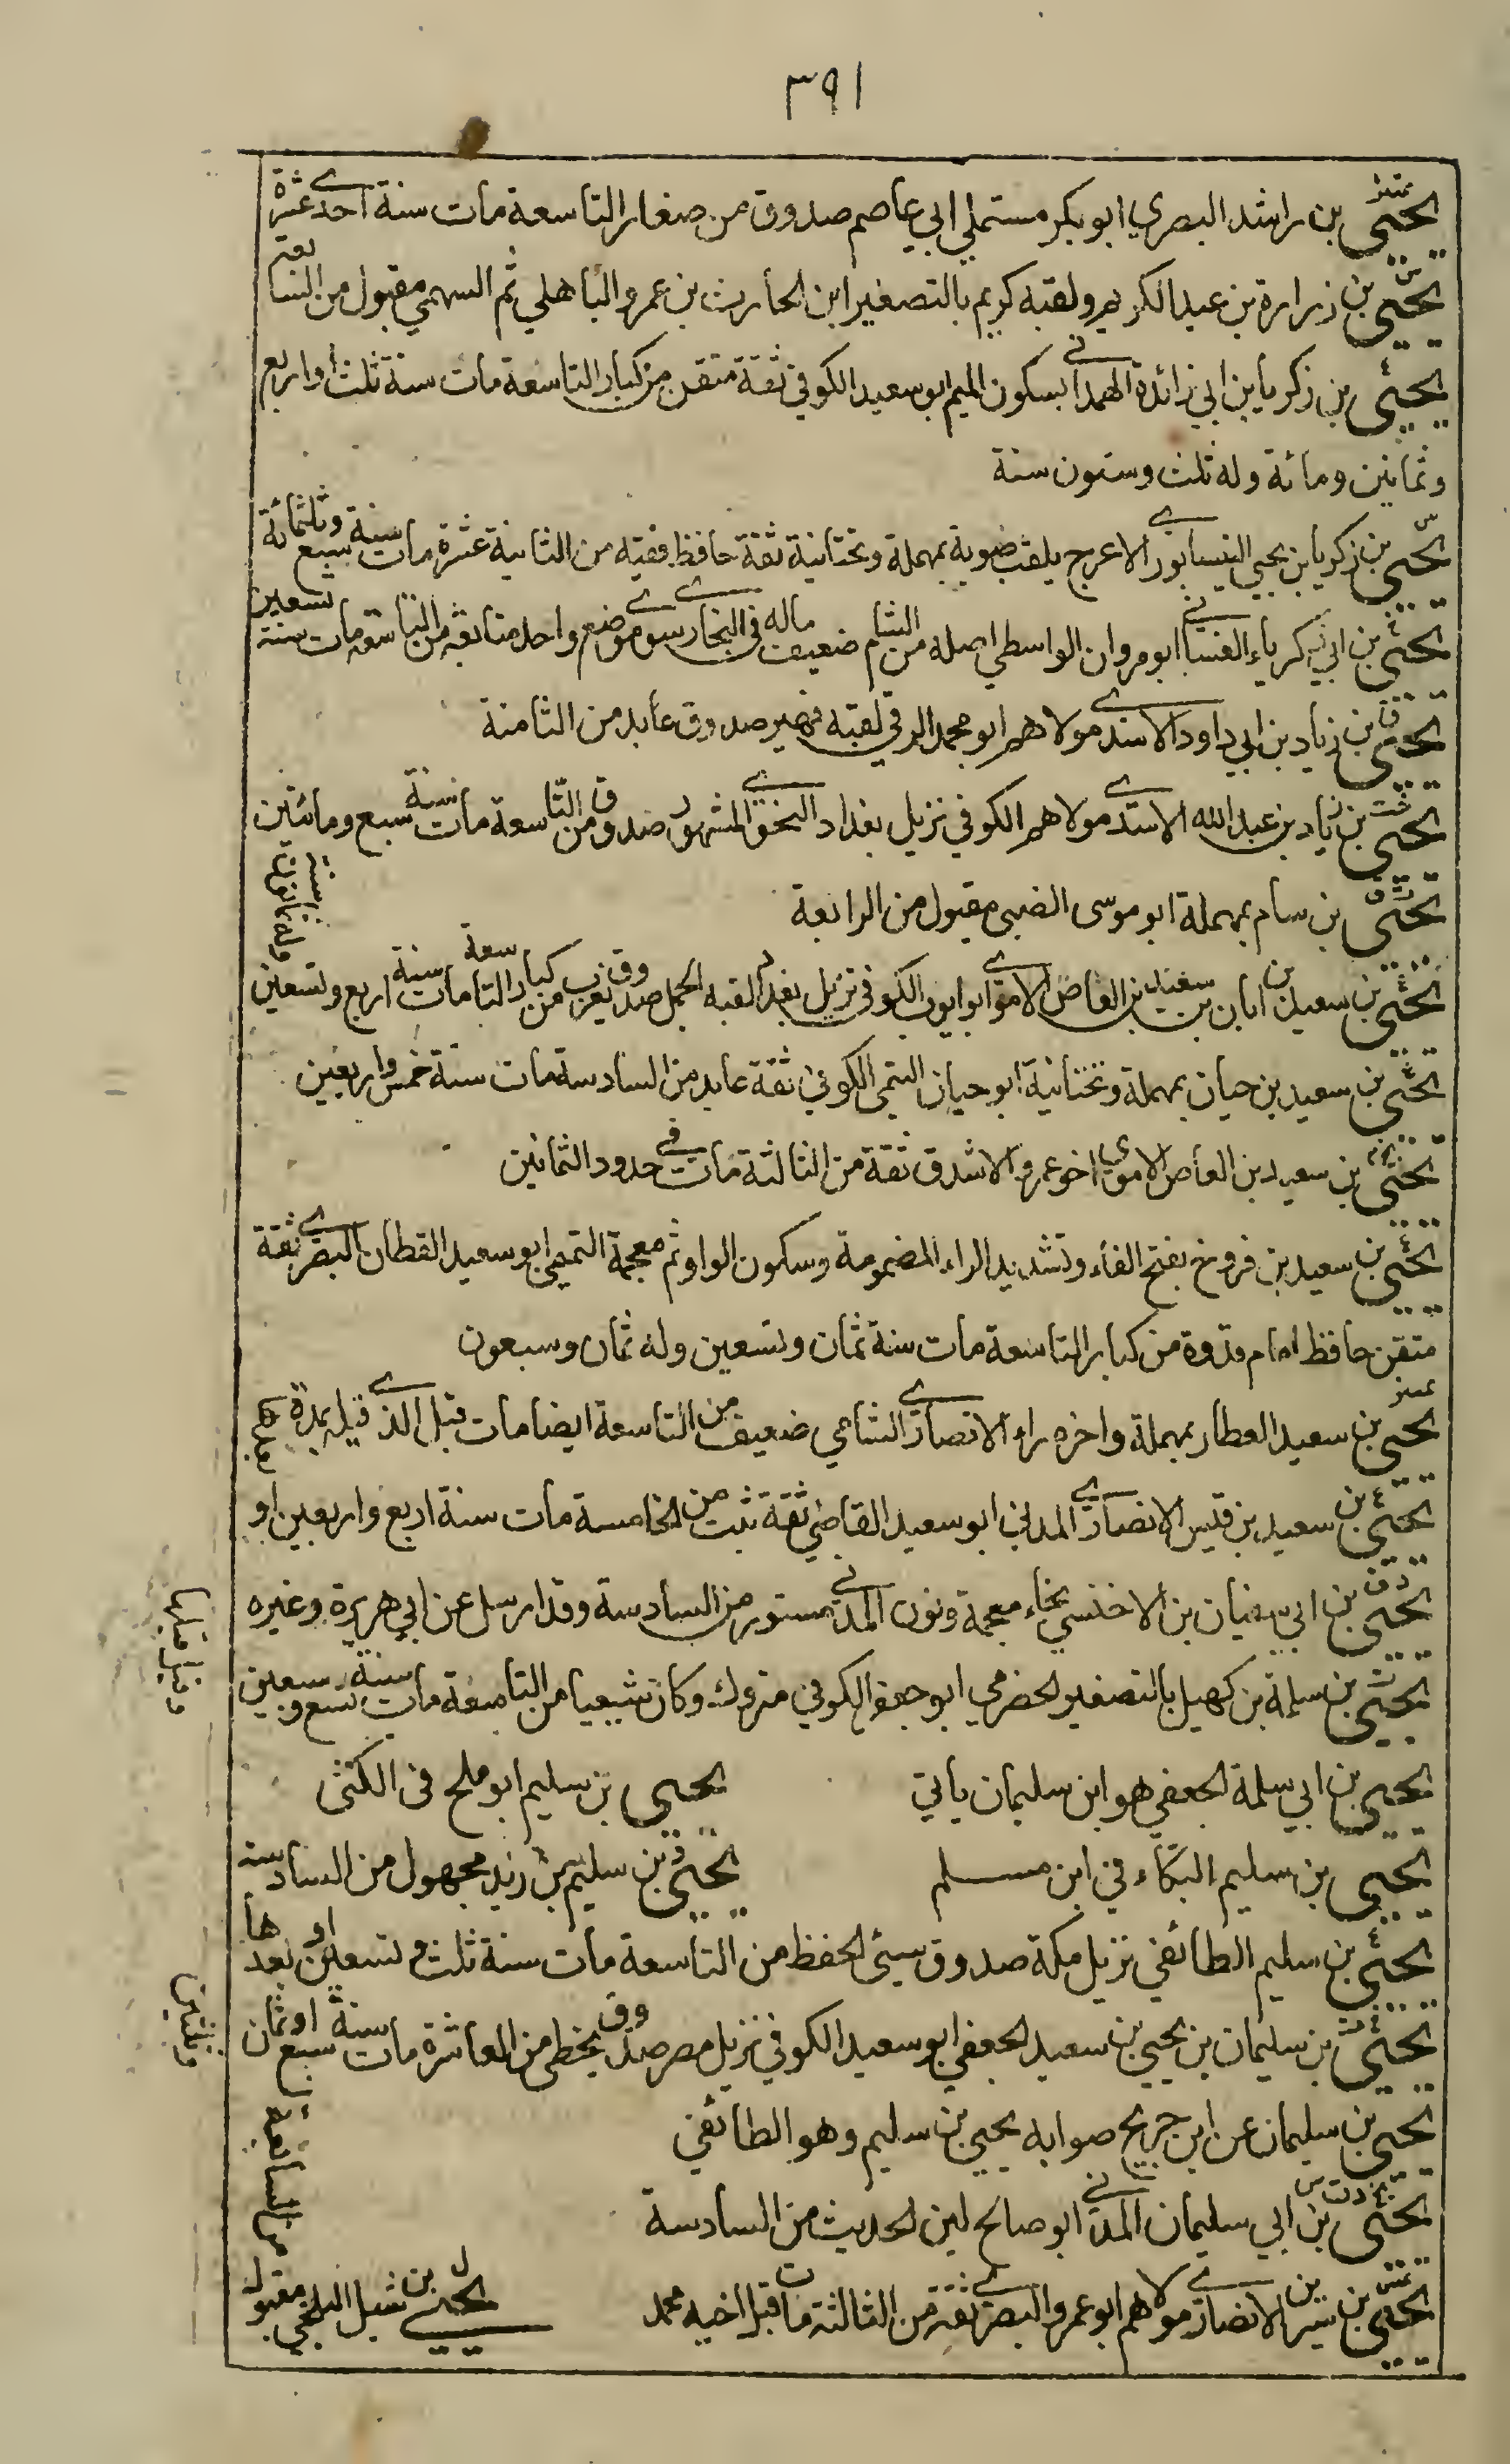 ٣٩١
يحيى بن راشد البصري ابو بكر مستملي ابي عاصم صدوق من صغار التاسعة مات سنة احدى عشرة
يحيى بن زرارة بن عبد الكريم ولقبه كريم بالتصغير ابن الحارث بن عمرو الباهلي ثم السهمي مقبول من السابعة
يحيى بن زكريا بن ابي زائدة الهمداني بسكون الميم ابو سعيد الكوفي ثقة متقن من كبار التاسعة مات سنة ثلث او اربع
وثمانين ومائة وله ثلث وستون سنة
يحيى بن زكريا بن يحيى النيسابوري الاعرج يلقب حيويه بمهملة وتحتانية ثقة حافظ فقيه من الثانية عشرة مات سنة سبع وثلثمائة
يحيى بن ابي زكرياء الغساني ابو مروان الواسطي اصله من الشام ضعيف ماله في البخاري سوى موضع واحد متابعة من التاسعة مات سنة تسعين
يحيى بن زياد بن ابي داود الاسدي مولاهم ابو محمد الرقي لقبه فهير صدوق عابد من الثامنة
يحيى بن زياد بن عبد الله الاسدي مولاهم الكوفي نزيل بغداد النحوي المشهور صدوق من التاسعة مات سنة سبع ومائتين
يحيى بن سام بمهملة ابو موسى الضبي مقبول من الرابعة
يحيى بن سعيد بن ابان بن سعيد بن العاص الاموي ابو ايوب الكوفي نزيل بغداد لقبه الجمل صدوق يغرب من كبار التاسعة مات سنة اربع وتسعين
يحيى بن سعيد بن حيان بمهملة وتحتانية ابو حيان التيمي الكوفي ثقة عابد من السادسة مات سنة خمس واربعين
يحيى بن سعيد بن العاص الاموي اخو عمرو الاشدق ثقة من الثالثة مات في حدود الثمانين
يحيى بن سعيد بن فروخ بفتح الفاء وتشديد الراء المضمومة وسكون الواو ثم معجمة التميمي ابو سعيد القطان البصري ثقة
متقن حافظ امام قدوة من كبار التاسعة مات سنة ثمان وتسعين وله ثمان وسبعون
يحيى بن سعيد العطار بمهملة واخره راء الانصاري الشامي ضعيف من التاسعة ايضا مات قبل الذي قبله بمدة
يحيى بن سعيد بن قيس الانصاري المدني ابو سعيد القاضي ثقة ثبت من الخامسة مات سنة اربع واربعين او
يحيى بن ابي سفيان بن الاخنسي بخاء معجمة ونون المدني مستور من السادسة وقد ارسل عن ابي هريرة وغيره
يحيى بن سلمة بن كهيل بالتصغير الحضرمي ابو جعفر الكوفي متروك وكان شيعيا من التاسعة مات سنة تسع وسبعين
يحيى بن ابي سلمة الجعفي هو ابن سليمان ياتي يحيى بن سليم ابو بلج في الكنى
يحيى بن سليم البكاء في ابن مسلم يحيى بن سليم بن زيد مجهول من السادسة
يحيى بن سليم الطائفي نزيل مكة صدوق سيئ الحفظ من التاسعة مات سنة ثلث وتسعين او بعدها
يحيى بن سليمان بن يحيى بن سعيد الجعفي ابو سعيد الكوفي نزيل مصر صدوق يخطئ من العاشرة مات سنة سبع او ثمان
يحيى بن سليمان عن ابن جريج صوابه يحيى بن سليم وهو الطائفي
يحيى بن ابي سليمان المدني ابو صالح لين الحديث من السادسة
يحيى بن سيرين الانصاري مولاهم ابو عمرو البصري ثقة من الثالثة مات قبل اخيه محمد يحيى بن شبل البلخي مقبول
من السابعة